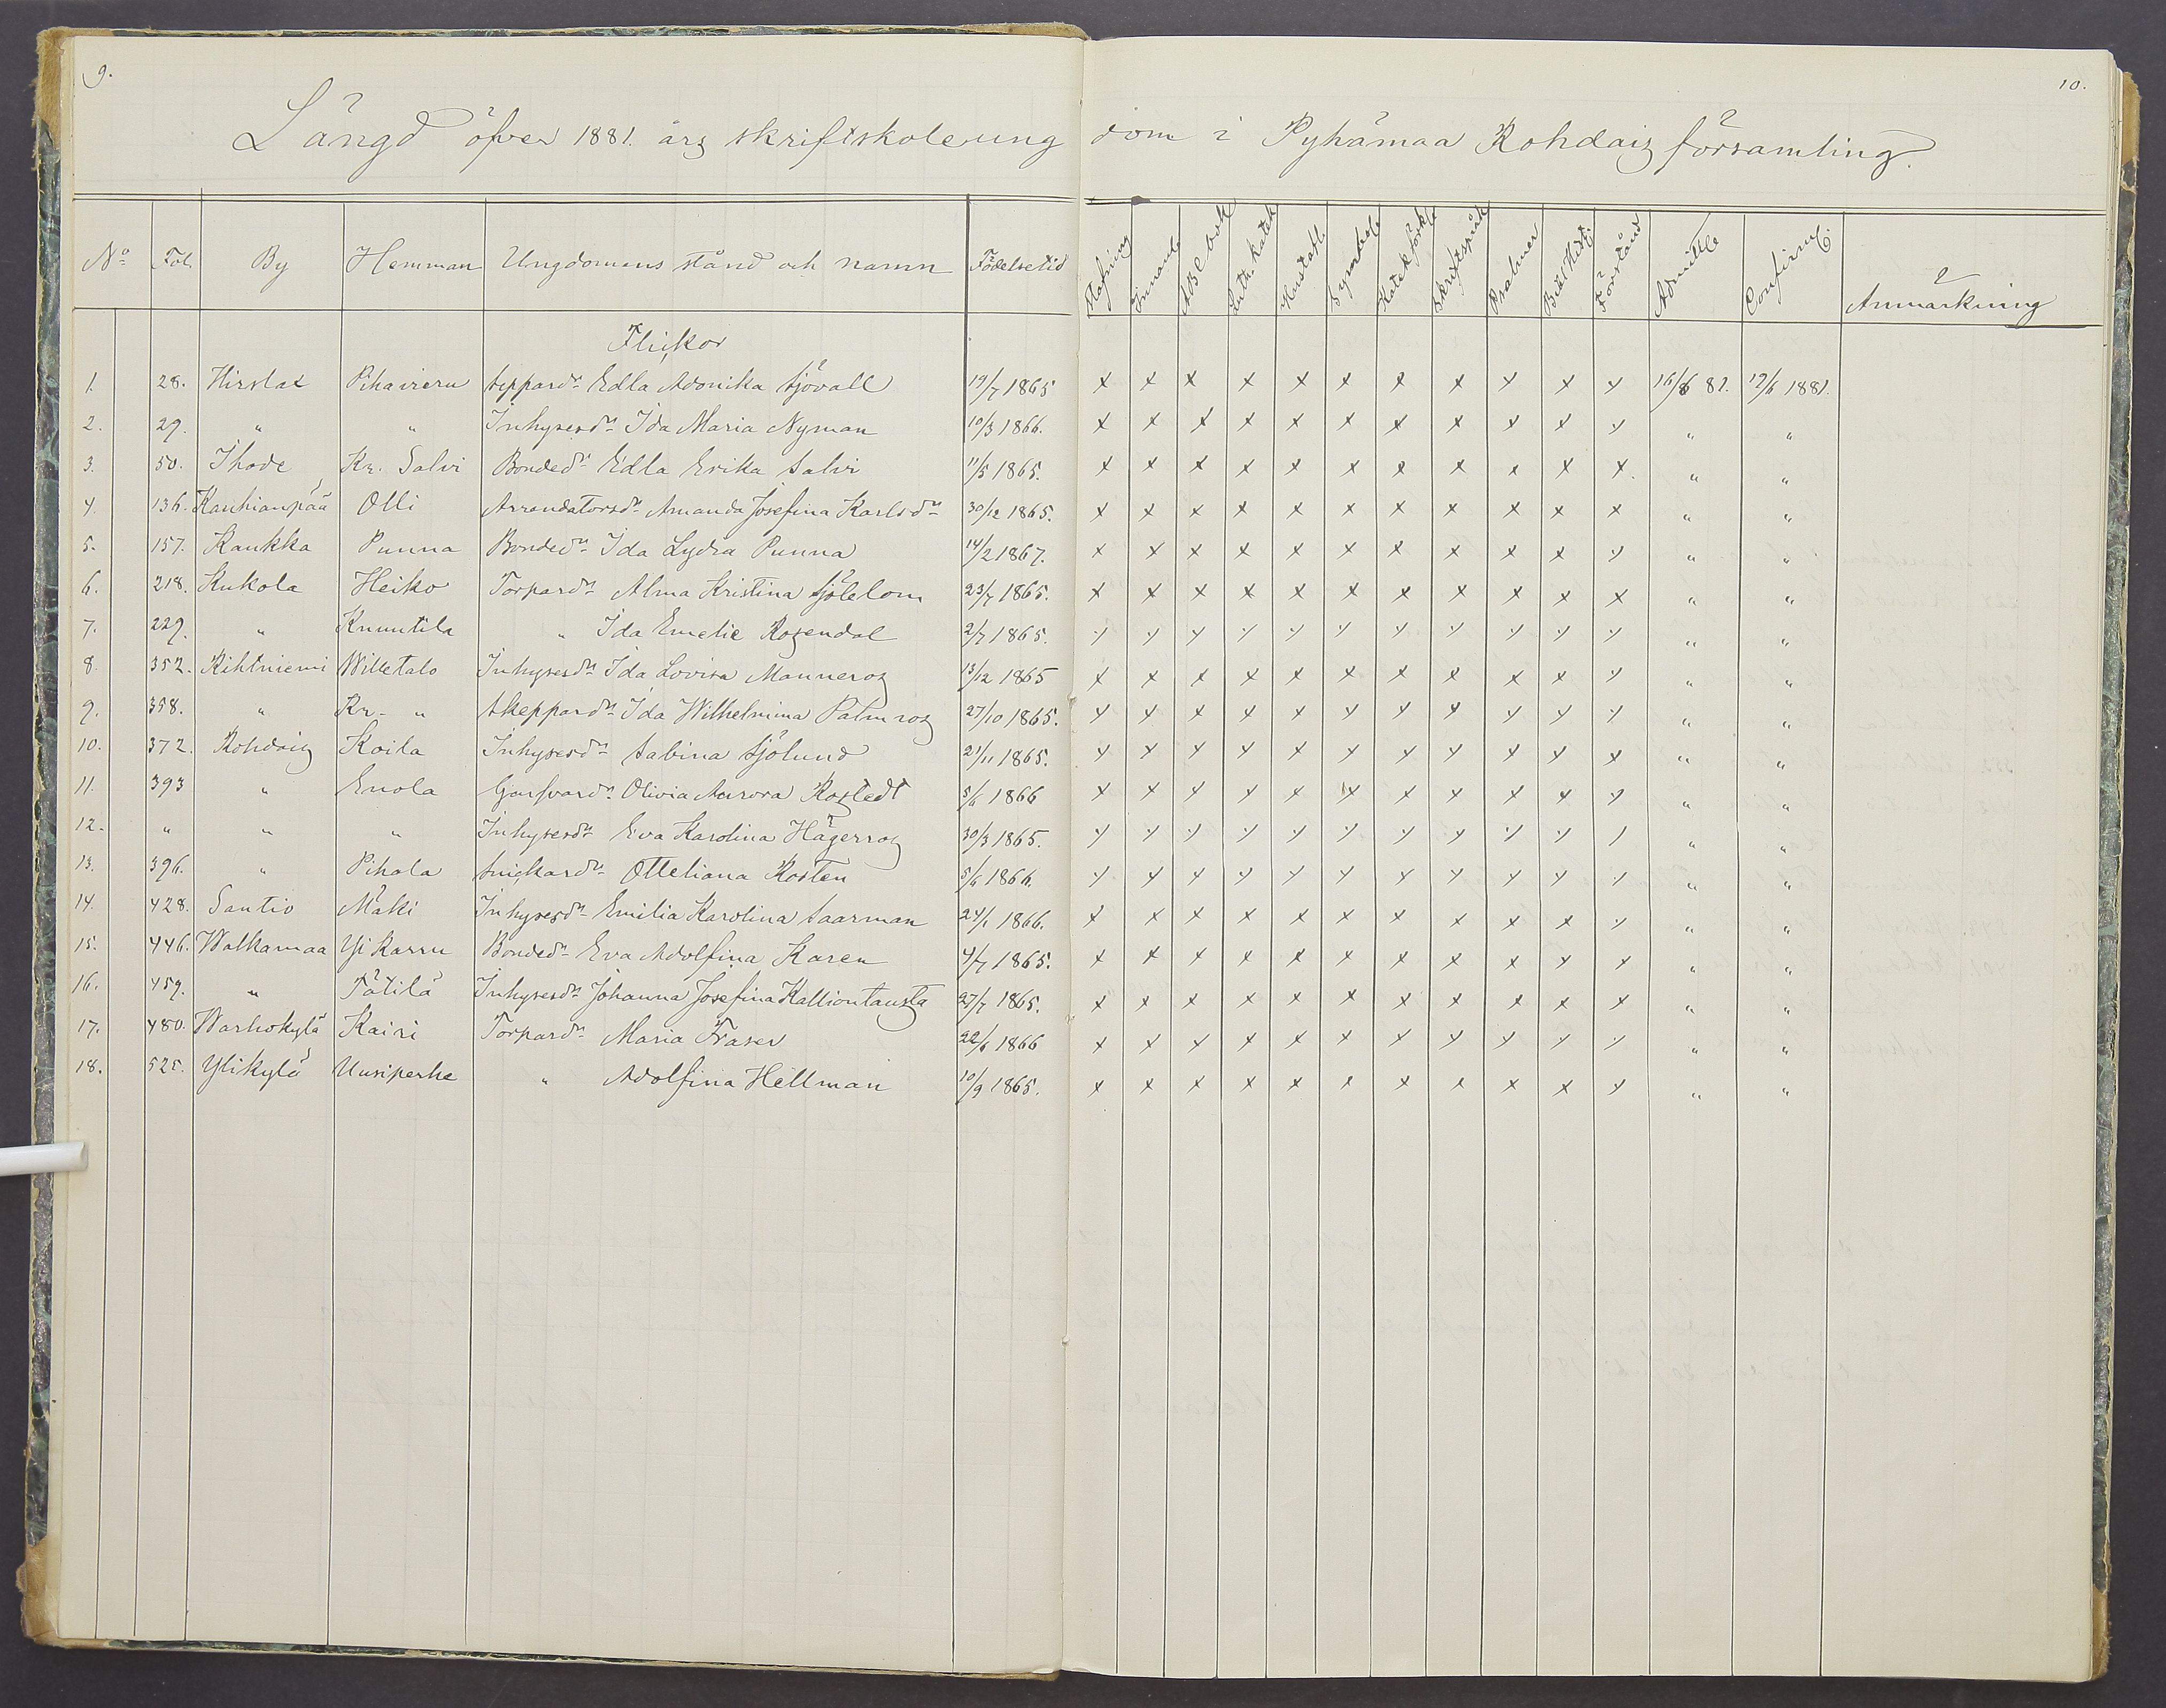 9.
10.
Längd öfver 1881. års skriftskoleungdom i Pyhämaa Rohdais församling.
No Fol. By Hemman Ungdomens stånd och namn Födelsetid Stafning Innanl. ABC bok Luth. Katek Hustafl. Symbola Katek förkl. Skriftspråk Psalmer Bibl Hist. Förstånd Admitte Confirm. Anmärkning
Flickor
1. 28. Hirslax Pihavieru Skeppard:r Edla Adonika Sjövall 19/7 1865 x x x x x x x x x x x 16/6 81. 19/6 1881.
2. 29. " " Inhysesd:r Ida Maria Nyman 10/3 1866. x x x x x x x x x x x " "
3. 50. Ihode Kr. Salvi Bonded:r Edla Erika Salvi 11/5 1865. x x x x x x x x x x x. " "
4. 136. Kauhianpää Olli Arrendatorsd:r Amanda Josefina Karlsd:r 30/12 1865. x x x x x x x x x x x " "
5. 157. Kaukka Punna Bonded:r Ida Lydia Punna 14/2 1867. x x x x x x x x x x x " "
6. 218. Kukola Heiko Torpard:r Alma Kristina Sjöblom 23/7 1865. x x x x x x x x x x x " "
7. 229. " Knuutila " Ida Emelie Rosendal 2/7 1865. x x x x x x x x x x x " "
8. 352. Rihtniemi Willetalo Inhysesd:r Ida Lovisa Manneros 13/12 1865 x x x x x x x x x x x " "
9. 358. " Kr. " Skeppard:r Ida Wilhelmina Palmros 27/10 1865. x x x x x x x x x x x " "
10. 372. Rohdais Koila Inhysesd:r Sabina Sjölund 21/11 1865. x x x x x x x x x x x " "
11. 393 " Enola Garfvard:r Olivia Aurora Rostedt 5/6 1866 x x x x x x x x x x x " "
12. " " " Inhysesd:r Eva Karolina Hägerros 30/3 1865. x x x x x x x x x x x " "
13. 396. " Pihala Snickard:r Otteliana Rosten 5/6 1866. x x x x x x x x x x x " "
14. 428. Santio Mäki Inhysesd:r Emilia Karolina Saarman 24/1 1866. x x x x x x x x x x x " "
15. 446. Walkamaa Yli Karru Bonded:r Eva Adolfina Karen 4/7 1865. x x x x x x x x x x x " "
16. 459. " Tätilä Inhysesd:r Johanna Josefina Kalliontausta 27/7 1865. x x x x x x x x x x x " "
17. 480. Warhokylä Kairi Torpard:r Maria Fraser 22/6 1866 x x x x x x x x x x x " "
18. 525. Ylikylä Uusiperhe " Adolfina Hellman 10/9 1865. x x x x x x x x x x x " "